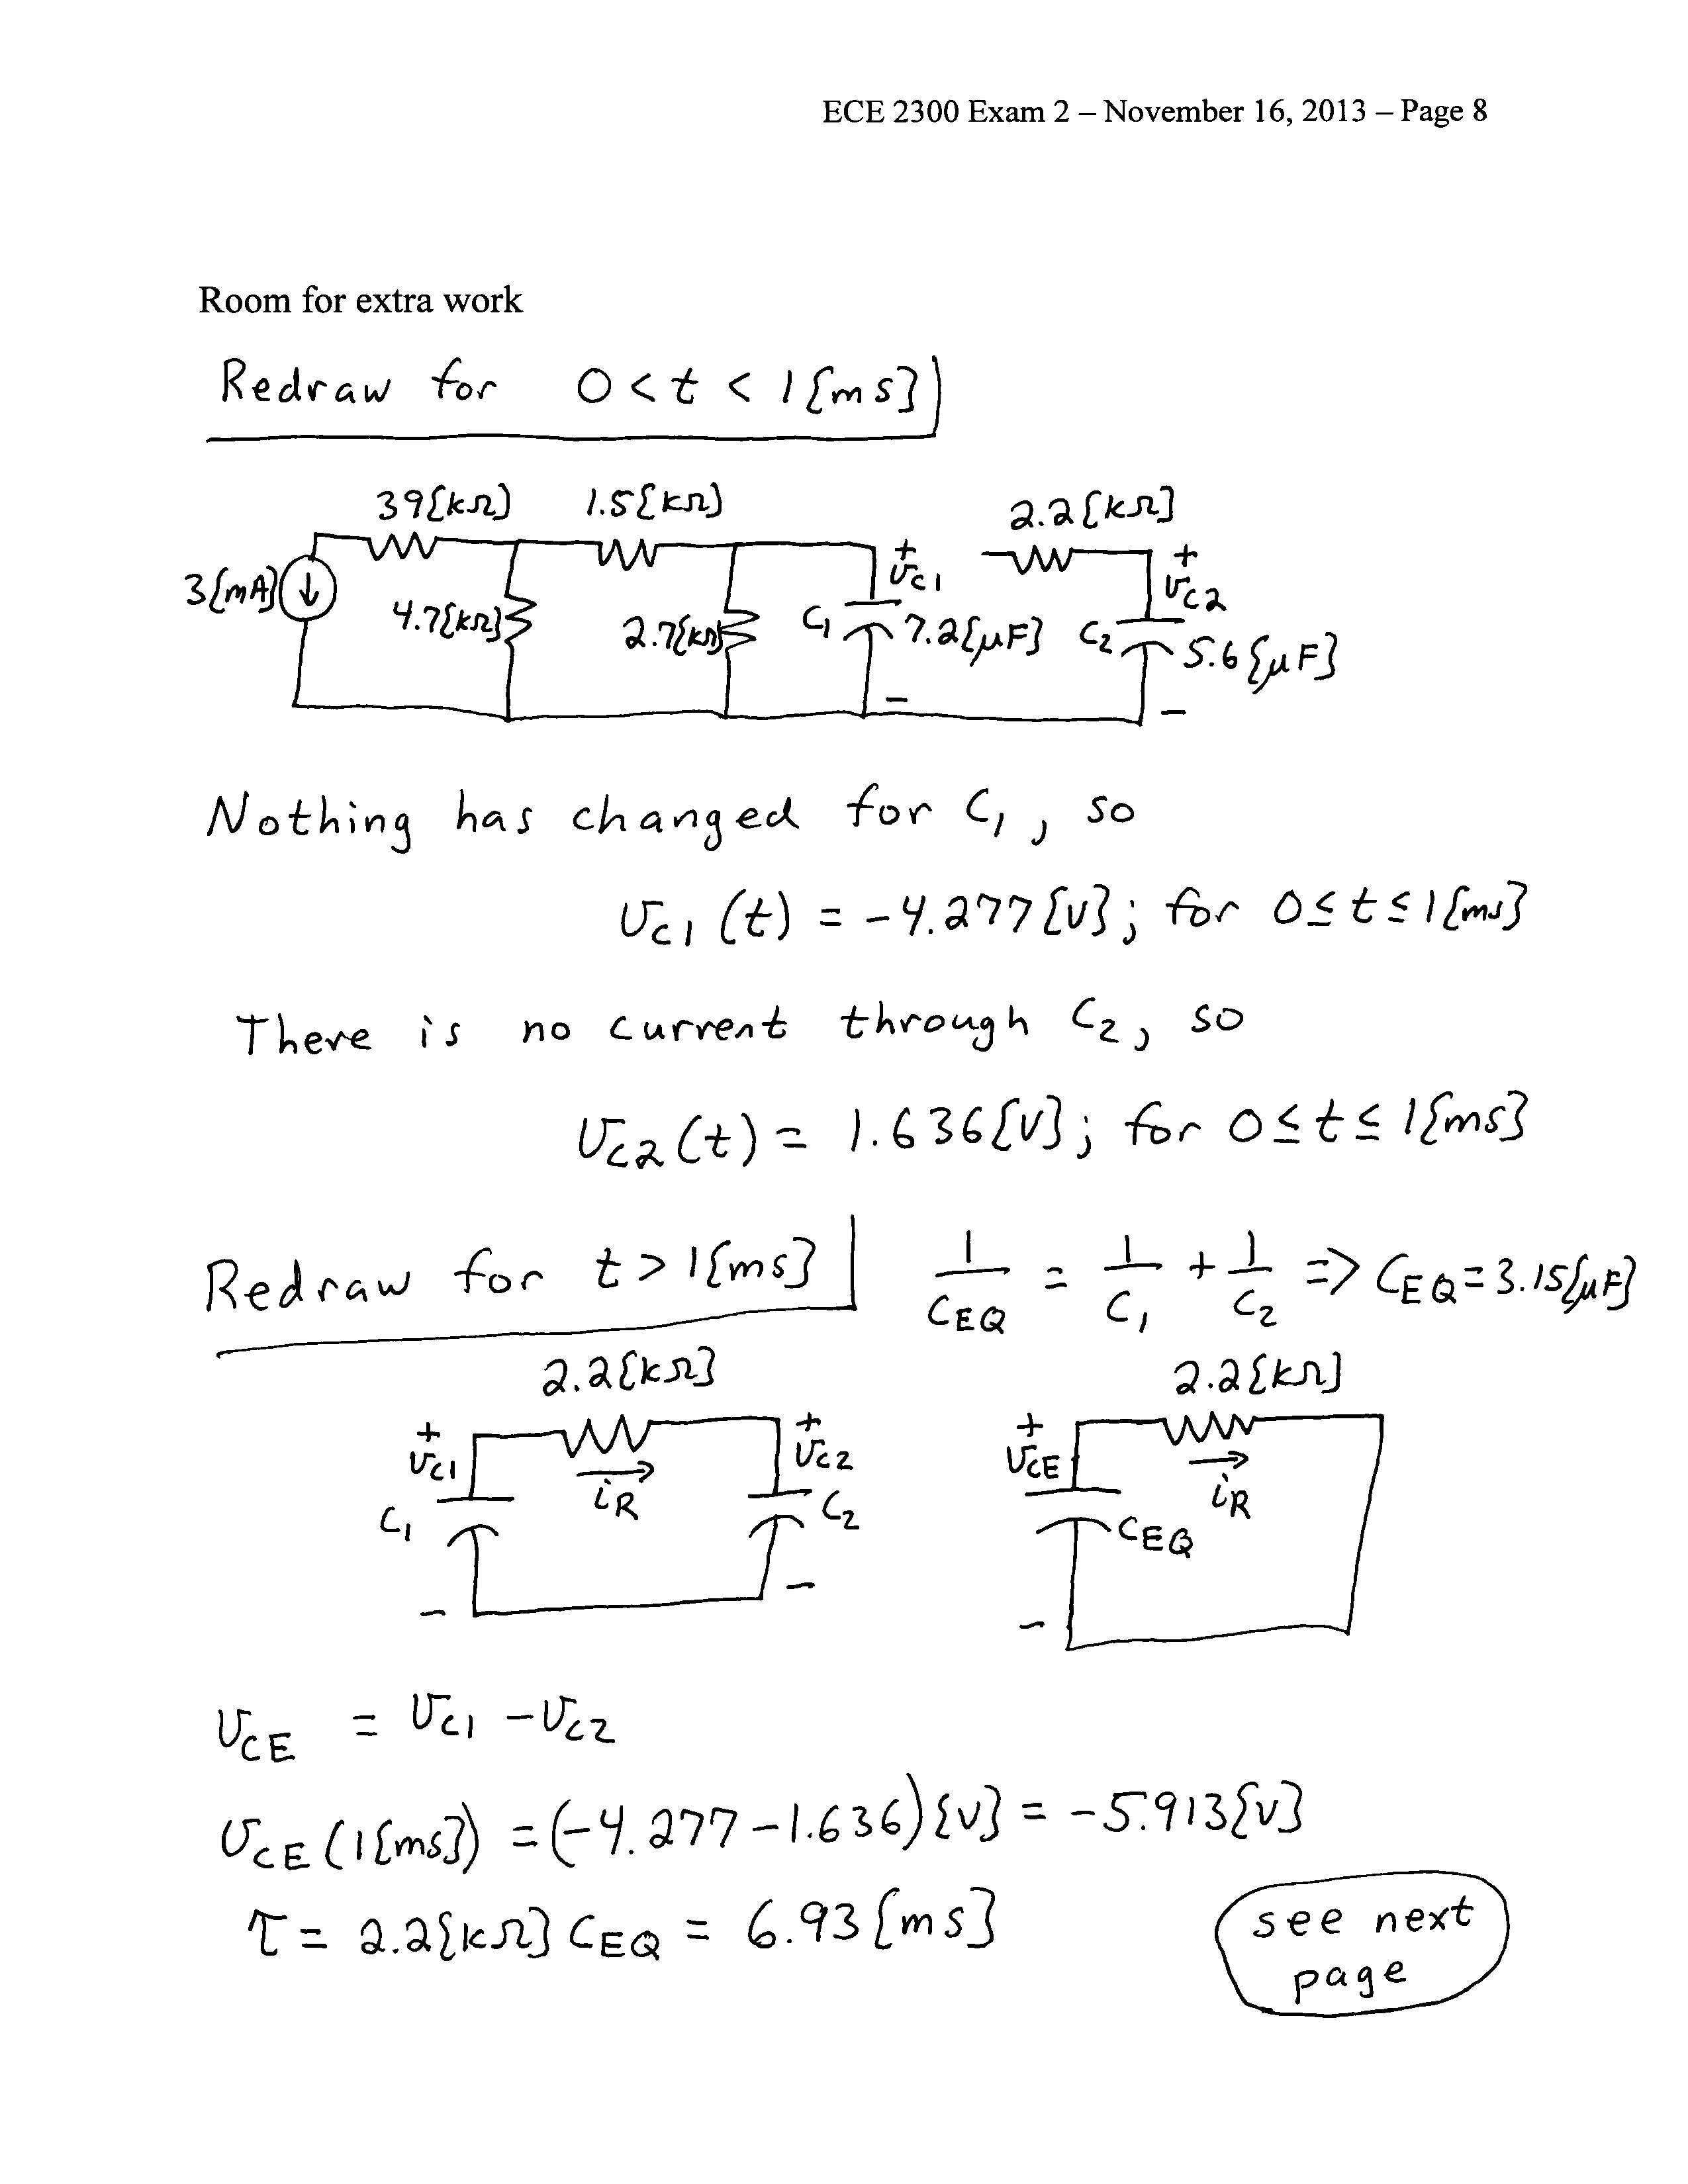 ECE 2300 Exam 2 – November 16, 2013 – Page 8
Room for extra work
Redraw for 0 < t < 1[ms]
39[kΩ] 1.5[kΩ] 2.2[kΩ]
3[mA] 4.7[kΩ] 2.7[kΩ] C1 + vC1 - 7.2[μF] C2 + vC2 - 5.6[μF]
Nothing has changed for C1, so
vC1(t) = -4.277[V]; for 0 ≤ t ≤ 1[ms]
There is no current through C2, so
vC2(t) = 1.636[V]; for 0 ≤ t ≤ 1[ms]
Redraw for t > 1[ms] 1/CEQ = 1/C1 + 1/C2 => CEQ = 3.15[μF]
2.2[kΩ] 2.2[kΩ]
+ vC1 - C1 iR + vC2 - C2 + vCE - CEQ iR
vCE = vC1 - vC2
vCE(1[ms]) = (-4.277 - 1.636)[V] = -5.913[V]
τ = 2.2[kΩ] CEQ = 6.93[ms]
see next
page